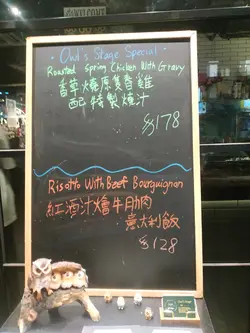 Owl's Stage Special
Roasted Spring Chicken With Gravy
香草燒原隻春雞
配特製燒汁
$178
Risotto With Beef Bourguignan
紅酒汁燴牛肋肉
意大利飯
$128